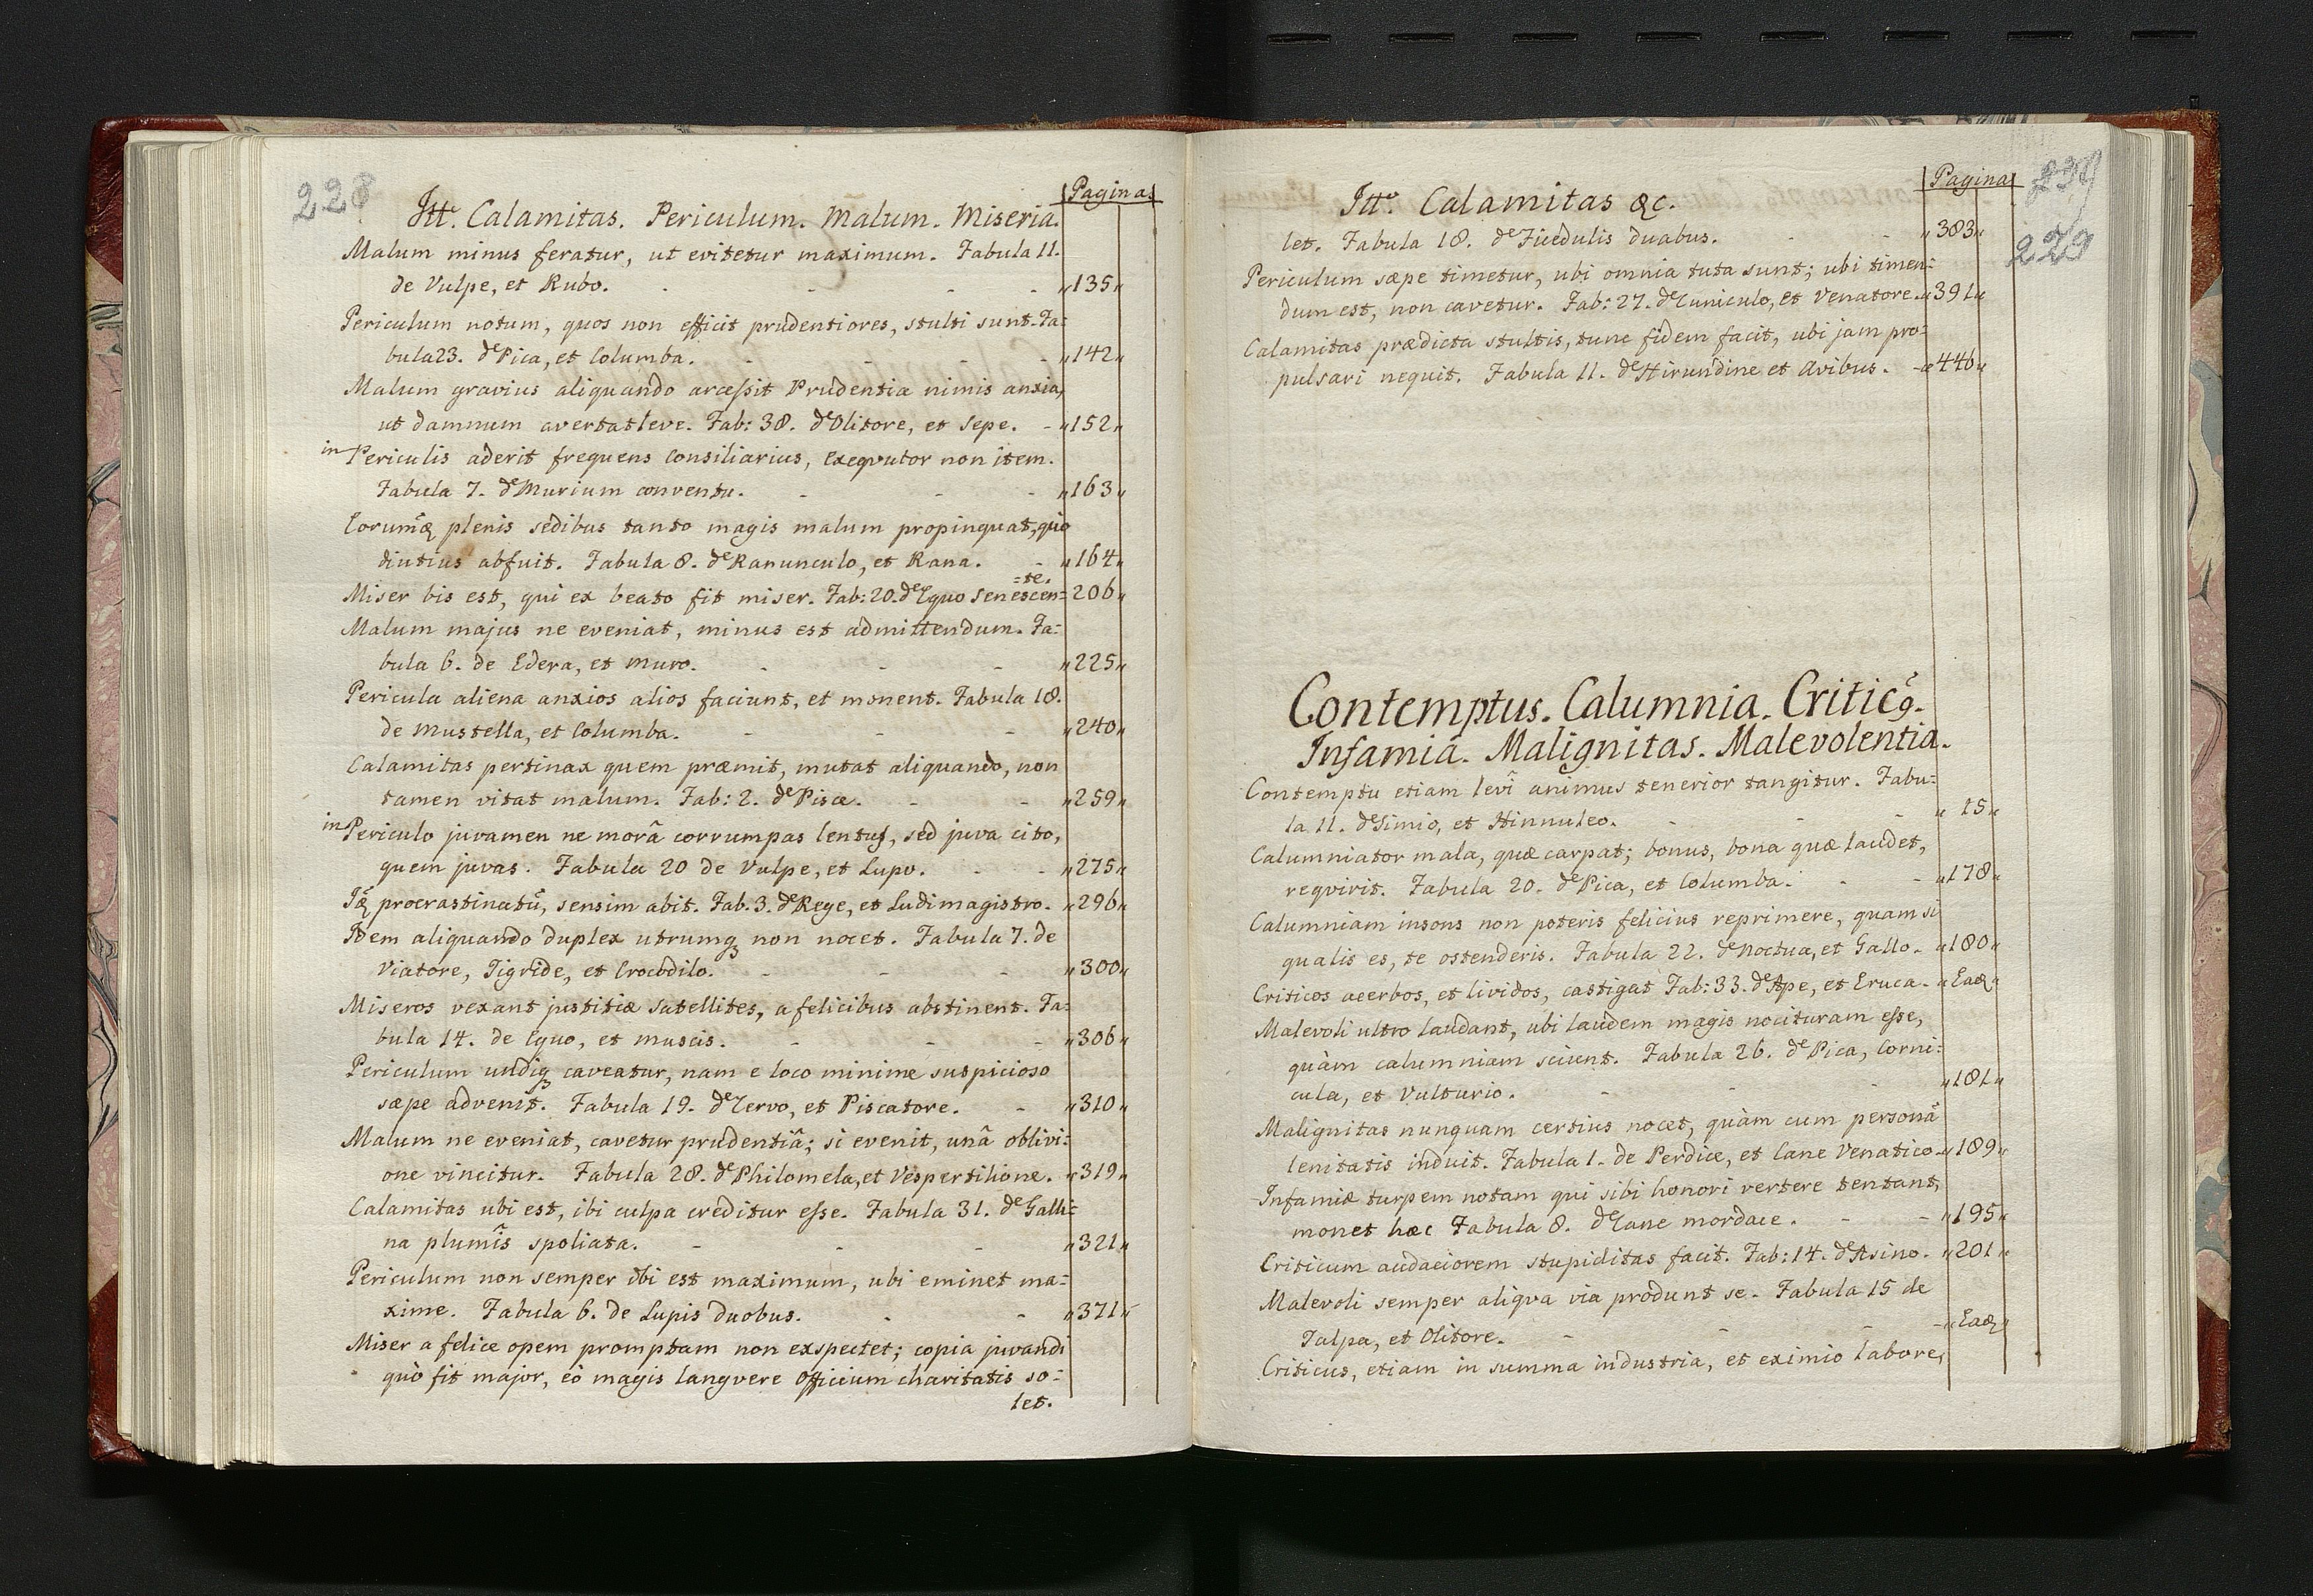 228
Itt. Calamitas. Periculum. Malum. Miseria.
Pagina.
Malum minus feratur, ut evitetur maximum. Fabula 11.
de Vulpe, et Rubo. - - - - „135„
Periculum notum, quos non efficit prudentiores, stulti sunt. Fa=
bula 23. de Pica, et Columba. - - - - „142„
Malum gravius aliquando arcessit Prudentia nimis anxia,
ut damnum avertat leve. Fab: 38. de Olitore, et Sepe. - „152„
in Periculis aderit frequens Consiliarius, Exeqvutor non item.
Fabula 7. de Murium conventu. - - - „163„
plenis sedibus tanto magis malum propinquat, quo
diutius abfuit. Fabula 8. de Ranunculo, et Rana. - „164„
Miser bis est, qui ex beato fit miser. Fab: 20. de Equo Senescen= 206„
=te.
Malum majus ne eveniat, minus est admittendum. Fa=
bula 6. de Edera, et Muro. - - - „225„
Pericula aliena anxios alios faciunt, et monent. Fabula 18.
de Mustella, et Columba. - - - „240„
Calamitas pertinax quem præmit, mutat aliquando, non
tamen vitat malum. Fab: 2. de Pisce. - - „259„
in Periculo juvamen ne morâ corrumpas lentus, sed juva cito,
quem juvas. Fabula 20 de Vulpe, et Lupo. - - „275„
procrastinatū, sensim abit. Fab. 3. de Rege, et Ludimagistro. „296„
Idem aliquando duplex utrumq; non nocet. Fabula 7. de
Viatore, Tigride, et Crocodilo. - - - „300„
Miseros vexant justitiæ Satellites, a felicibus abstinent. Fa=
bula 14. de Equo, et Muscis. - - - „306„
Periculum undiq; caveatur, nam e loco minime suspicioso
sæpe advenit. Fabula 19. de Cervo, et Piscatore. - „310„
Malum ne eveniat, cavetur prudentiâ; si evenit, unâ oblivi=
one vincitur. Fabula 28. de Philomela, et Vespertilione. „319„
Calamitas ubi est, ibi culpa creditur esse. Fabula 31. de Galli=
na plumîs spoliata. - - - „321„
Periculum non semper ibi est maximum, ubi eminet ma=
xime. Fabula 6. de Lupis duobus. - - „371„
Miser a felice opem promptam non exspectet; copia juvandi
quò fit major, eò magis langvere Officium charitatis so=
let.
239
229
Itt. Calamitas &c.
Pagina
let. Fabula 18. de Ficedulis duabus. - - „383„
Periculum sæpe timetur, ubi omnia tuta sunt; ubi timen=
dum est, non cavetur. Fab: 27. de Cuniculo, et Venatore. „391„
Calamitas prædicta stultis, tunc fidem facit, ubi jam pro=
pulsari nequit. Fabula 11. de Hirundine et Avibus. - „446„
Contemptus. Calumnia. Criticꝰ.
Infamia. Malignitas. Malevolentia.
Contemptu etiam levî animus tenerior tangitur. Fabu=
la 11. de Simio, et Hinnuleo. - - - „15„
Calumniator mala, quæ carpat; bonus, bona quæ laudet,
reqvirit. Fabula 20. de Pica, et Columba. - - „178„
Calumniam insons non poteris felicius reprimere, quam si
qualis es, te ostenderis. Fabula 22. de Noctua, et Gallo. - „180„
Criticos acerbos, et lividos, castigat Fab: 33. de Ape, et Eruca. - „Eaꝫ„
Malevoli ultro laudant, ubi laudem magis nocituram esse,
quàm calumniam sciunt. Fabula 26. de Pica, Corni=
cula, et Vulturio. - - - „181„
Malignitas nunquam certius nocet, quàm cum personã
lenitatis induit. Fabula 1. de Perdice, et Cane Venatico. „189„
Infamiæ turpem notam qui sibi honori vertere tentant,
monet hæc Fabula 8. de Cane mordace. - - „195„
Criticum audaciorem stupiditas facit. Fab: 14. de Asino. - „201„
Malevoli semper aliqva via produnt se. Fabula 15 de
Talpa, et Olitore. - - - - „Eaꝫ„
Criticus, etiam in summa industria, et eximio labore,